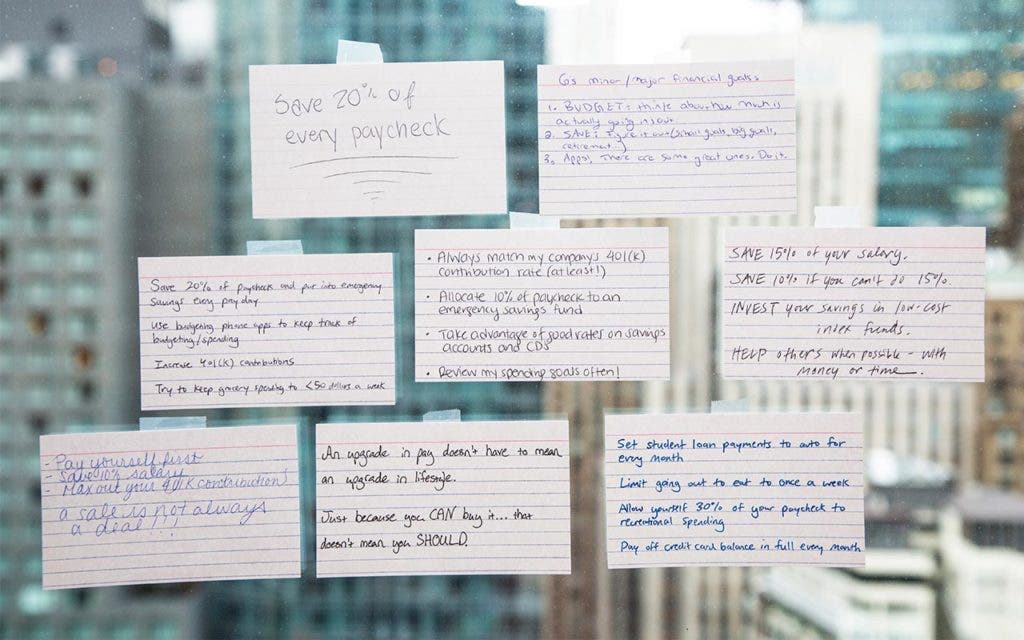 Save 20% of
every paycheck
G's minor/major financial goals
1. BUDGET: think about how much is
actually going in & out.
2. SAVE: Figure it out (small goals, big goals,
retirement..)
3. Apps, There are some great ones. Do it.
Save 20% of paycheck and put into emergency
savings every pay day
Use budgeting phone apps to keep track of
budgeting/spending
Increase 401(K) contributions
Try to keep grocery spending to <50 dollars a week
• Always match my company's 401(K)
contribution rate (at least!)
• Allocate 10% of paycheck to an
emergency savings fund
• Take advantage of good rates on savings
accounts and CDs
• Review my spending goals often!
SAVE 15% of your salary.
SAVE 10% if you can't do 15%.
INVEST your savings in low-cost
index funds.
HELP others when possible - with
money or time.
- Pay yourself first
- Save 10% salary
- Max out your 401K contribution!
a sale is not always
a deal!!!
An upgrade in pay doesn't have to mean
an upgrade in lifestyle.
Just because you CAN buy it... that
doesn't mean you SHOULD.
Set student loan payments to auto for
every month
Limit going out to eat to once a week
Allow yourself 30% of your paycheck to
recreational spending
Pay off credit card balance in full every month